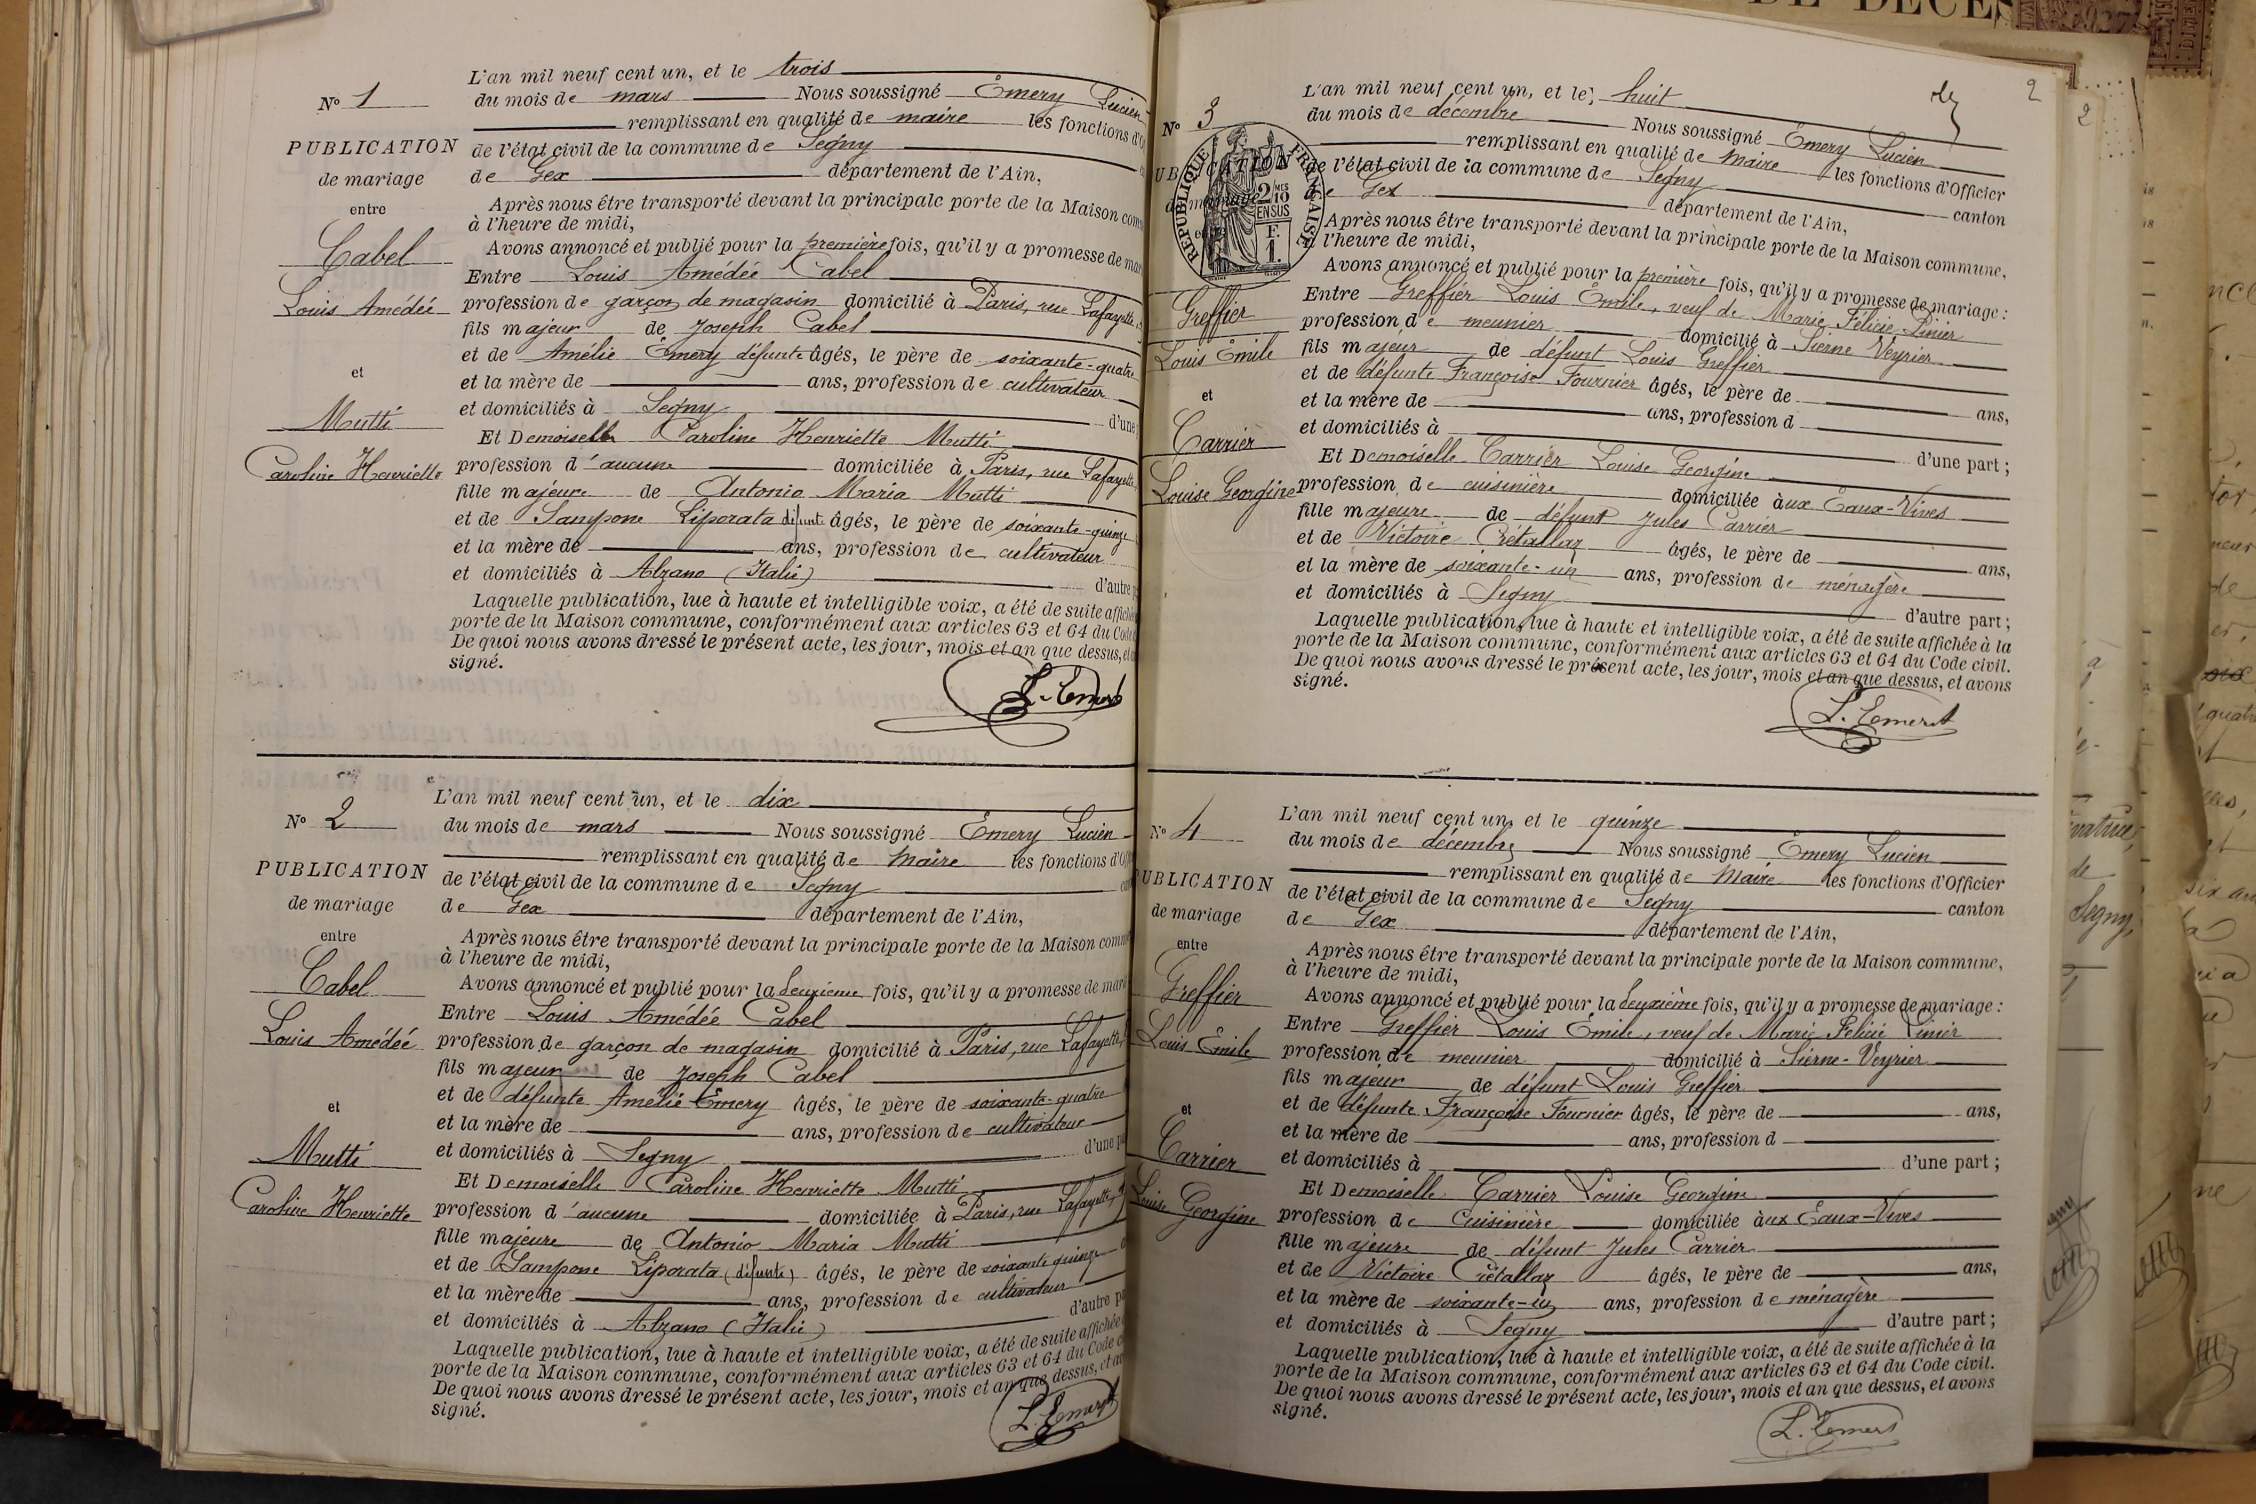 DE DÉCÈS
N° 1
PUBLICATION
de mariage
entre
Cabel
Louis Amédée
et
Mutti
Caroline Henriette
L'an mil neuf cent un, et le trois
du mois de mars Nous soussigné Émery Lucien
remplissant en qualité de maire les fonctions d'O
de l'état civil de la commune de Segny
de Gex département de l'Ain,
Après nous être transporté devant la principale porte de la Maison com
à l'heure de midi,
Avons annoncé et publié pour la première fois, qu'il y a promesse de mar
Entre Louis Amédée Cabel
profession de garçon de magasin domicilié à Paris, rue Lafayette
fils majeur de Joseph Cabel
et de Amélie Émery défunte âgés, le père de soixante-quatre
et la mère de ans, profession de cultivateur
et domiciliés à Segny d'une
Et Demoiselle Caroline Henriette Mutti
profession d'aucune domiciliée à Paris, rue Lafayette
fille majeure de Antonio Maria Mutti
et de Sampone Liporata défunte âgés, le père de soixante-quinze
et la mère de ans, profession de cultivateur
et domiciliés à Alzano (Italie) d'autre p
Laquelle publication, lue à haute et intelligible voix, a été de suite affichée
porte de la Maison commune, conformément aux articles 63 et 64 du Code
De quoi nous avons dressé le présent acte, les jour, mois et an que dessus, et
signé.
L. Émery
N° 2
PUBLICATION
de mariage
entre
Cabel
Louis Amédée
et
Mutti
Caroline Henriette
L'an mil neuf cent un, et le dix
du mois de mars Nous soussigné Émery Lucien
remplissant en qualité de Maire les fonctions d'Off
de l'état civil de la commune de Segny ca
de Gex département de l'Ain,
Après nous être transporté devant la principale porte de la Maison comm
à l'heure de midi,
Avons annoncé et publié pour la deuxième fois, qu'il y a promesse de mari
Entre Louis Amédée Cabel
profession de garçon de magasin domicilié à Paris, rue Lafayette
fils majeur de Joseph Cabel
et de défunte Amélie Émery âgés, le père de soixante-quatre
et la mère de ans, profession de cultivateur
et domiciliés à Segny d'une pa
Et Demoiselle Caroline Henriette Mutti
profession d'aucune domiciliée à Paris, rue Lafayette
fille majeure de Antonio Maria Mutti
et de Sampone Liporata (défunte) âgés, le père de soixante quinze
et la mère de ans, profession de cultivateur
et domiciliés à Alzano (Italie) d'autre pa
Laquelle publication, lue à haute et intelligible voix, a été de suite affichée
porte de la Maison commune, conformément aux articles 63 et 64 du Code c
De quoi nous avons dressé le présent acte, les jour, mois et an que dessus, et av
signé.
L. Émery
2
N° 3
PUBLICATION
de mariage
entre
RÉPUBLIQUE FRANÇAISE
2/10 MES
EN SUS
F. 1.
Greffier
Louis Émile
et
Carrier
Louise Georgine
L'an mil neuf cent un, et le huit
du mois de décembre Nous soussigné Émery Lucien
remplissant en qualité de Maire les fonctions d'Officier
de l'état civil de la commune de Segny canton
de Gex département de l'Ain,
Après nous être transporté devant la principale porte de la Maison commune,
à l'heure de midi,
Avons annoncé et publié pour la première fois, qu'il y a promesse de mariage :
Entre Greffier Louis Émile, veuf de Marie Félicie Linier
profession de meunier domicilié à Sierne Veyrier
fils majeur de défunt Louis Greffier
et de défunte Françoise Fournier âgés, le père de ans,
et la mère de ans, profession d
et domiciliés à d'une part ;
Et Demoiselle Carrier Louise Georgine
profession de cuisinière domiciliée aux Eaux-Vives
fille majeure de défunt Jules Carrier
et de Victoire Crétallaz âgés, le père de ans,
et la mère de soixante-un ans, profession de ménagère
et domiciliés à Segny d'autre part ;
Laquelle publication, lue à haute et intelligible voix, a été de suite affichée à la
porte de la Maison commune, conformément aux articles 63 et 64 du Code civil.
De quoi nous avons dressé le présent acte, les jour, mois et an que dessus, et avons
signé.
L. Émery
N° 4
PUBLICATION
de mariage
entre
Greffier
Louis Émile
et
Carrier
Louise Georgine
L'an mil neuf cent un, et le quinze
du mois de décembre Nous soussigné Émery Lucien
remplissant en qualité de Maire les fonctions d'Officier
de l'état civil de la commune de Segny canton
de Gex département de l'Ain,
Après nous être transporté devant la principale porte de la Maison commune,
à l'heure de midi,
Avons annoncé et publié pour la deuxième fois, qu'il y a promesse de mariage :
Entre Greffier Louis Émile, veuf de Marie Félicie Linier
profession de meunier domicilié à Sierne-Veyrier
fils majeur de défunt Louis Greffier
et de défunte Françoise Fournier âgés, le père de ans,
et la mère de ans, profession d
et domiciliés à d'une part ;
Et Demoiselle Carrier Louise Georgine
profession de Cuisinière domiciliée aux Eaux-Vives
fille majeure de défunt Jules Carrier
et de Victoire Crétallaz âgés, le père de ans,
et la mère de soixante-un ans, profession de ménagère
et domiciliés à Segny d'autre part ;
Laquelle publication, lue à haute et intelligible voix, a été de suite affichée à la
porte de la Maison commune, conformément aux articles 63 et 64 du Code civil.
De quoi nous avons dressé le présent acte, les jour, mois et an que dessus, et avons
signé.
L. Émery
2
de
Segny,